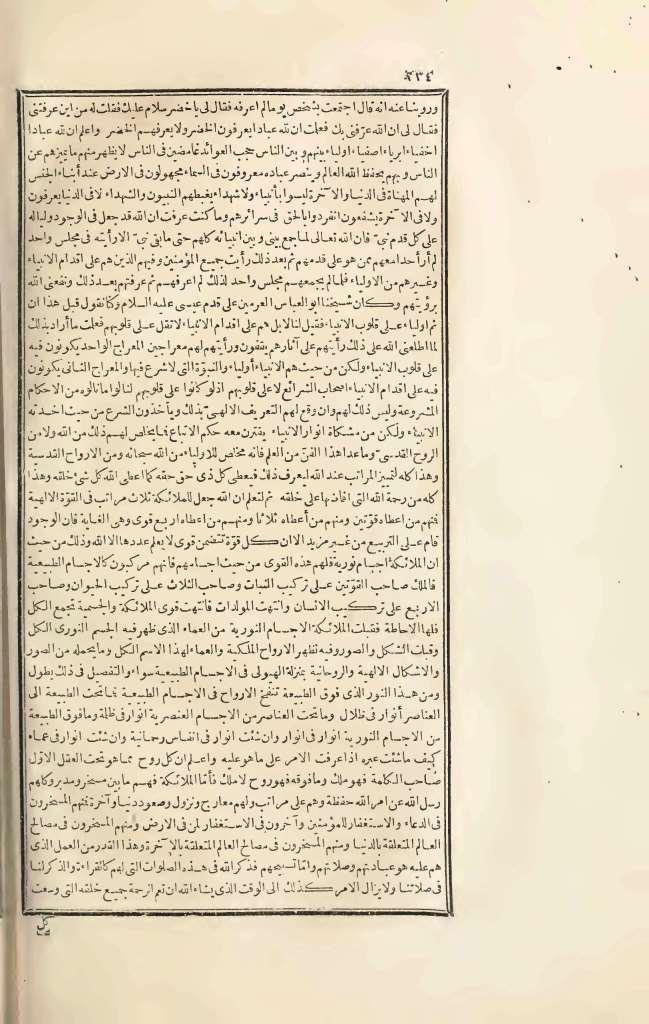 ٢٣٤
وروينا عنه انه قال اجتمعت بشخص يوما لم اعرفه فقال لى يا خضر سلام عليك فقلت له من اين عرفتنى
فقال لى ان الله عرّفنى بك فعلمت ان لله عبادا يعرفون الخضر ولا يعرفهم الخضر واعلم ان لله عبادا
اخفياء ابرياء اصفياء اولياء بينهم وبين الناس حجب العوائد غامضين فى الناس لا يظهر منهم ما يميزهم عن
الناس وبهم يحفظ الله العالم وينصر عباده معروفون فى السماء مجهولون فى الارض عند أبناء الجنس
لهم المهناة فى الدنيا والآخرة ليسوا بأنبياء ولا شهداء يغبطهم النبيون والشهداء لا فى الدنيا يعرفون
ولا فى الآخرة يشفعون انفردوا بالحق فى سرائرهم وما كنت عرفت ان الله قد جعل فى الوجود وليا له
على كل قدم نبىّ فان الله تعالى لما جمع بينى وبين انبيائه كلهم حتى ما بقى نبىّ الا رأيته فى مجلس واحد
لم أر أحدا معهم ممن هو على قدمهم ثم بعد ذلك رأيت جميع المؤمنين وفيهم الذين هم على اقدام الانبياء
وغيرهم من الاولياء فلما لم يجمعهم مجلس واحد لذلك لم اعرفهم ثم عرفتهم بعد ذلك ونفعنى الله
برؤيتهم وكان شيخنا ابو العباس العرينى على قدم عيسى عليه السلام وكنا نقول قبل هذا ان
ثم اولياء على قلوب الانبياء فقيل لنا لا بل هم على اقدام الانبياء لا تقل على قلوبهم فعلمت ما أراد بذلك
لما اطلعنى الله على ذلك رأيتهم على آثارهم يقفون ورأيتهم لهم معراجين المعراج الواحد يكونون فيه
على قلوب الانبياء ولكن من حيث هم الانبياء أولياء والنبوّة التى لا شرع فيها والمعراج الثانى يكونون
فيه على اقدام الانبياء اصحاب الشرائع لا على قلوبهم اذ لو كانوا على قلوبهم لنالوا ما نالوه من الاحكام
المشروعة وليس ذلك لهم وان وقع لهم التعريف الالهىّ بذلك ويأخذون الشرع من حيث اخذته
الانبياء ولكن من مشكاة انوار الانبياء يقترن معه حكم الاتباع فما يخلص لهم ذلك من الله ولا من
الروح القدسىّ وما عدا هذا الفنّ من العلم فانه مخلص للاولياء من الله سبحانه ومن الارواح القدسية
وهذا كله لتميز المراتب عند الله ليعرف ذلك فيعطى كل ذى حق حقه كما اعطى الله كل شئ خلقه وهذا
كله من رحمة الله التى افاضها على خلقه ثم لتعلم ان الله جعل للملائكة ثلاث مراتب فى القوّة الالهية
فمنهم من اعطاه قوّتين ومنهم من أعطاه ثلاثا ومنهم من اعطاه اربع قوى وهى الغاية فان الوجود
قام على التربيع من غير مزيد الا ان كل قوّة تتضمن قوى لا يعلم عددها الا الله وذلك من حيث
ان الملائكة اجسام نورية فلهم هذه القوى من حيث اجسامهم فانهم مركبون كالاجسام الطبيعية
فالملك صاحب القوّتين على تركيب النبات وصاحب الثلاث على تركيب الحيوان وصاحب
الاربع على تركيب الانسان وانتهت المولدات فانتهت قوى الملائكة والجسمية تجمع الكل
فلها الاحاطة فقبلت الملائكة الاجسام النورية من العماء الذى ظهر فيه الجسم النورى الكل
وقبلت الشكل والصور وفيه تظهر الارواح الملكية والعماء لهذا الاسم الكل وما يحمله من الصور
والاشكال الالهية والروحانية بمنزلة الهيولى فى الاجسام الطبيعية سواء والتفصيل فى ذلك يطول
ومن هذا النور الذى فوق الطبيعة تنفخ الارواح فى الاجسام الطبيعية فما تحت الطبيعة الى
العناصر أنوار فى ظلال وما تحت العناصر من الاجسام العنصرية انوار فى ظلمة وما فوق الطبيعة
من الاجسام النورية انوار فى انوار وان شئت انوار فى انفاس رحمانية وان شئت انوار فى عماء
كيف ما شئت عبره اذا عرفت الامر على ما هو عليه واعلم ان كل روح مما هو تحت العقل الاوّل
صاحب الكلمة فهو ملك وما فوقه فهو روح لا ملك فأمّا الملائكة فهم ما بين مسخر ومدبر وكلهم
رسل الله عن امر الله حفظة وهم على مراتب ولهم معارج ونزول وصعود دنيا وآخرة فمنهم المسخرون
فى الدعاء والاستغفار للمؤمنين وآخرون فى الاستغفار لمن فى الارض ومنهم المسخرون فى مصالح
العالم المتعلقة بالدنيا ومنهم المسخرون فى مصالح العالم المتعلقة بالآخرة وهذا القدر من العمل الذى
هم عليه هو عبادتهم وصلاتهم وامّا تسبيحهم فذكر الله فى هذه الصلوات التى لهم كالقراءة والذكر لنا
فى صلاتنا ولا يزال الامر كذلك الى الوقت الذى يشاء الله ان تعم الرحمة جميع خلقه التى وسعت
كل